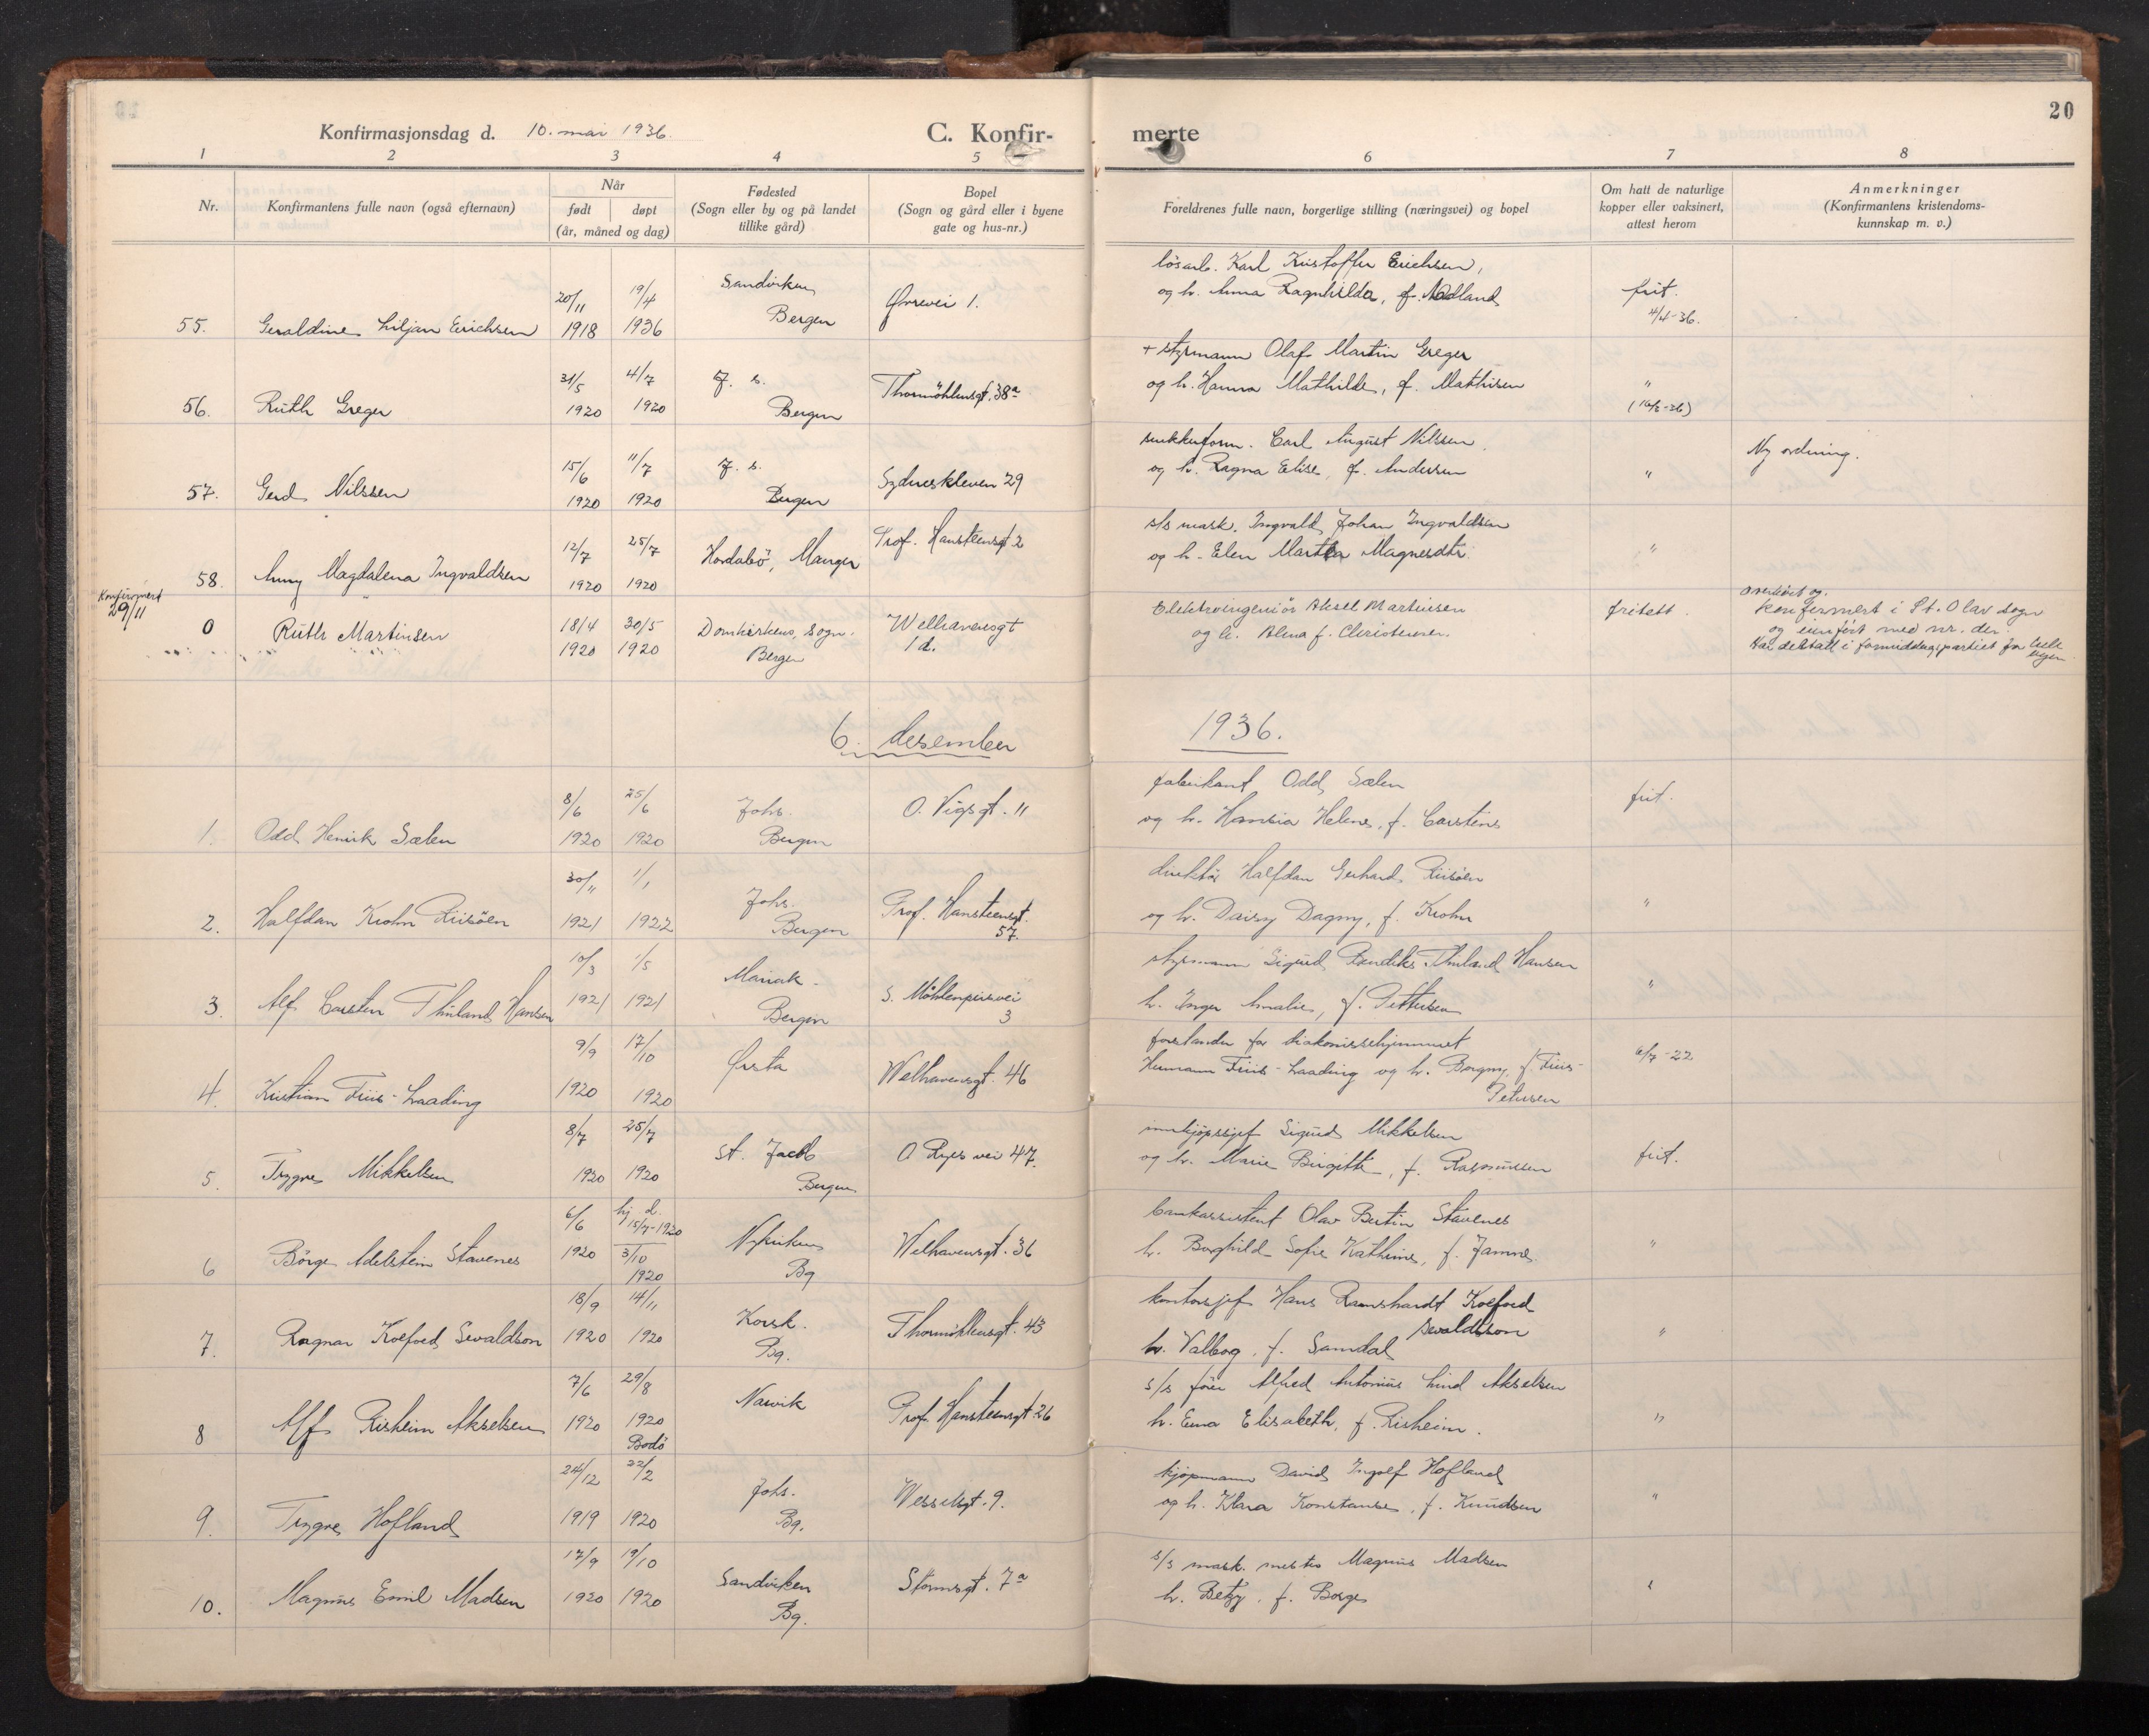 20
Konfirmasjonsdag d. 10. mai 1936.
C. Konfir-
merte
1 2 3 4 5 6 7 8
Nr.
Konfirmantens fulle navn (også efternavn)
Når
født døpt
(år, måned og dag)
Fødested
(Sogn eller by og på landet
tillike gård)
Bopel
(Sogn og gård eller i byene
gate og hus-nr.)
Foreldrenes fulle navn, borgerlige stilling (næringsvei) og bopel
Om hatt de naturlige
kopper eller vaksinert,
attest herom
Anmerkninger
(Konfirmantens kristendoms-
kunnskap m. v.)
20/11 19/4 Sandviken løsarb. Karl Kristoffer Erichsen,
55. Geraldine Liljan Erichsen 1918 1936 Bergen Øvrevei 1. og h. Anna Ragnhilda, f. Nadland frit.
4/4-36.
31/5 4/7 J. s. + styrmann Olaf Martin Greger
56. Ruth Greger 1920 1920 Bergen Thormöhlensgt. 38a og h. Hanna Mathilde, f. Mathisen "
15/6 11/7 J. s. Carl August Nilssen Ny ordning.
57. Gerd Nilssen 1920 1920 Bergen Sydneskleven 29 og h. Ragna Elise, f. Andersen "
12/7 25/7 Prof. Hansteensgt 2 s/s mask. Ingvald Johan Ingvaldsen
58. Anny Magdalena Ingvaldsen 1920 1920 Hordabö, Manger og h. Elen Martha Magnesdtr. "
Konfirmert
29/11
0 Ruth Martinsen 18/4 30/5 Domkirkens sogn. Welhavensgt Elektroingeniör Aksel Martinsen fritatt. overhört og
1920 1920 Bergen 1 d. og h. Alma f. Christensen. konfirmert i St. Olav sogn
og innfört med nr. der.
Har deltatt i formiddagspartiet for
6. desember 1936.
8/6 25/6 Johs. O. Vigsgt. 11 fabrikant Odd Sælen frit.
1. Odd Henrik Sælen 1920 1920 Bergen og h. Helene, f. Carstens
30/11 1/1 Johs. Prof. Hansteensgt. direktör Halfdan Gerhard Riisöen
2. Halfdan Krohn Riisöen 1921 1922 Bergen 57. og h. Daisy Dagny, f. Krohn "
10/3 1/5 Mariak. S. Möhlenprisvei styrmann Sigurd Hansen
3. Alf Carsten Hansen 1921 1921 Bergen 3 h. Inger Amalie, f. Pettersen "
9/9 17/10 Ørsta forstander for diakonissehjemmet 6/7-22
4. Kristian Friis-Laading 1920 1920 Welhavensgt. 46 Hermann Friis-Laading og h. Borgny, f. Friis-
Petersen
8/7 25/7 St. Jacob O Ryes vei 47. innkjøpssjef Sigurd Mikkelsen frit.
5. Trygve Mikkelsen 1920 1920 Bergen og h. Marie Birgitte, f. Rasmussen
6/6 hj. d. 15/7-1920 Nykirken bankassistent Olav Bertin Stavenes
6 Börge Adelstein Stavenes 1920 3/10 1920 Bg Welhavensgt. 36 h. Borghild Sofie Kathrine, f. Jamne. "
18/9 14/11 Korsk. kontorsjef Hans Koefoed
Sevaldson
7. Ragnar Koefoed Sevaldson 1920 1920 Bg. Thormöhlensgt. 43 h. Valborg, f. Samdal "
7/6 29/8 Narvik s/s förer Alfred Antonius Lind Akselsen
8 Alf Risheim Akselsen 1920 1920 Prof. Hansteensgt. 26 h. Erna Elisabeth, f. Risheim. "
Bodö
24/12 22/2 Johs. kjøpmann David Ingolf Hofland
9. Trygve Hofland 1919 1920 Bg. Wesselsgt. 9. og h. Klara Konstanse, f. Knudsen "
17/9 19/10 Sandviken s/s mask. mester Magnus Madsen
10. Magnus Emil Madsen 1920 1920 Bg. Stormsgt. 7a h. Betzy, f. Borge